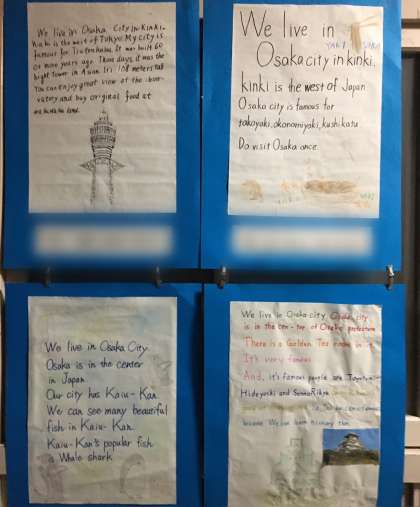 We live in Osaka City in Kinki.
Kinki is the west of Tokyo. My city is
famous for Tsutenkaku. It was built 60
or more years ago. Those days, it was the
hight tower in Asian. It is 108 meters tall
You can enjoy great view of the obser-
vatory and buy original food at
We live in
Osaka city in kinki.
kinki is the west of Japan
Osaka city is famous for
takoyaki, okonomiyaki, kushikatu
Do visit Osaka once.
We live in Osaka City.
Osaka is in the center
in Japan
Our city has Kaiu-Kan
We can see many beautiful
fish in Kaiu-Kan.
Kaiu-Kan's popular fish
is Whale shark
We live in Osaka city, Osaka city
is in the cen-top of Osaka
There is a Golden Tea room in it.
It's very famous
And, it's famous people are Toyotomi
Hideyoshi and SennoRikyu
because We can learn history